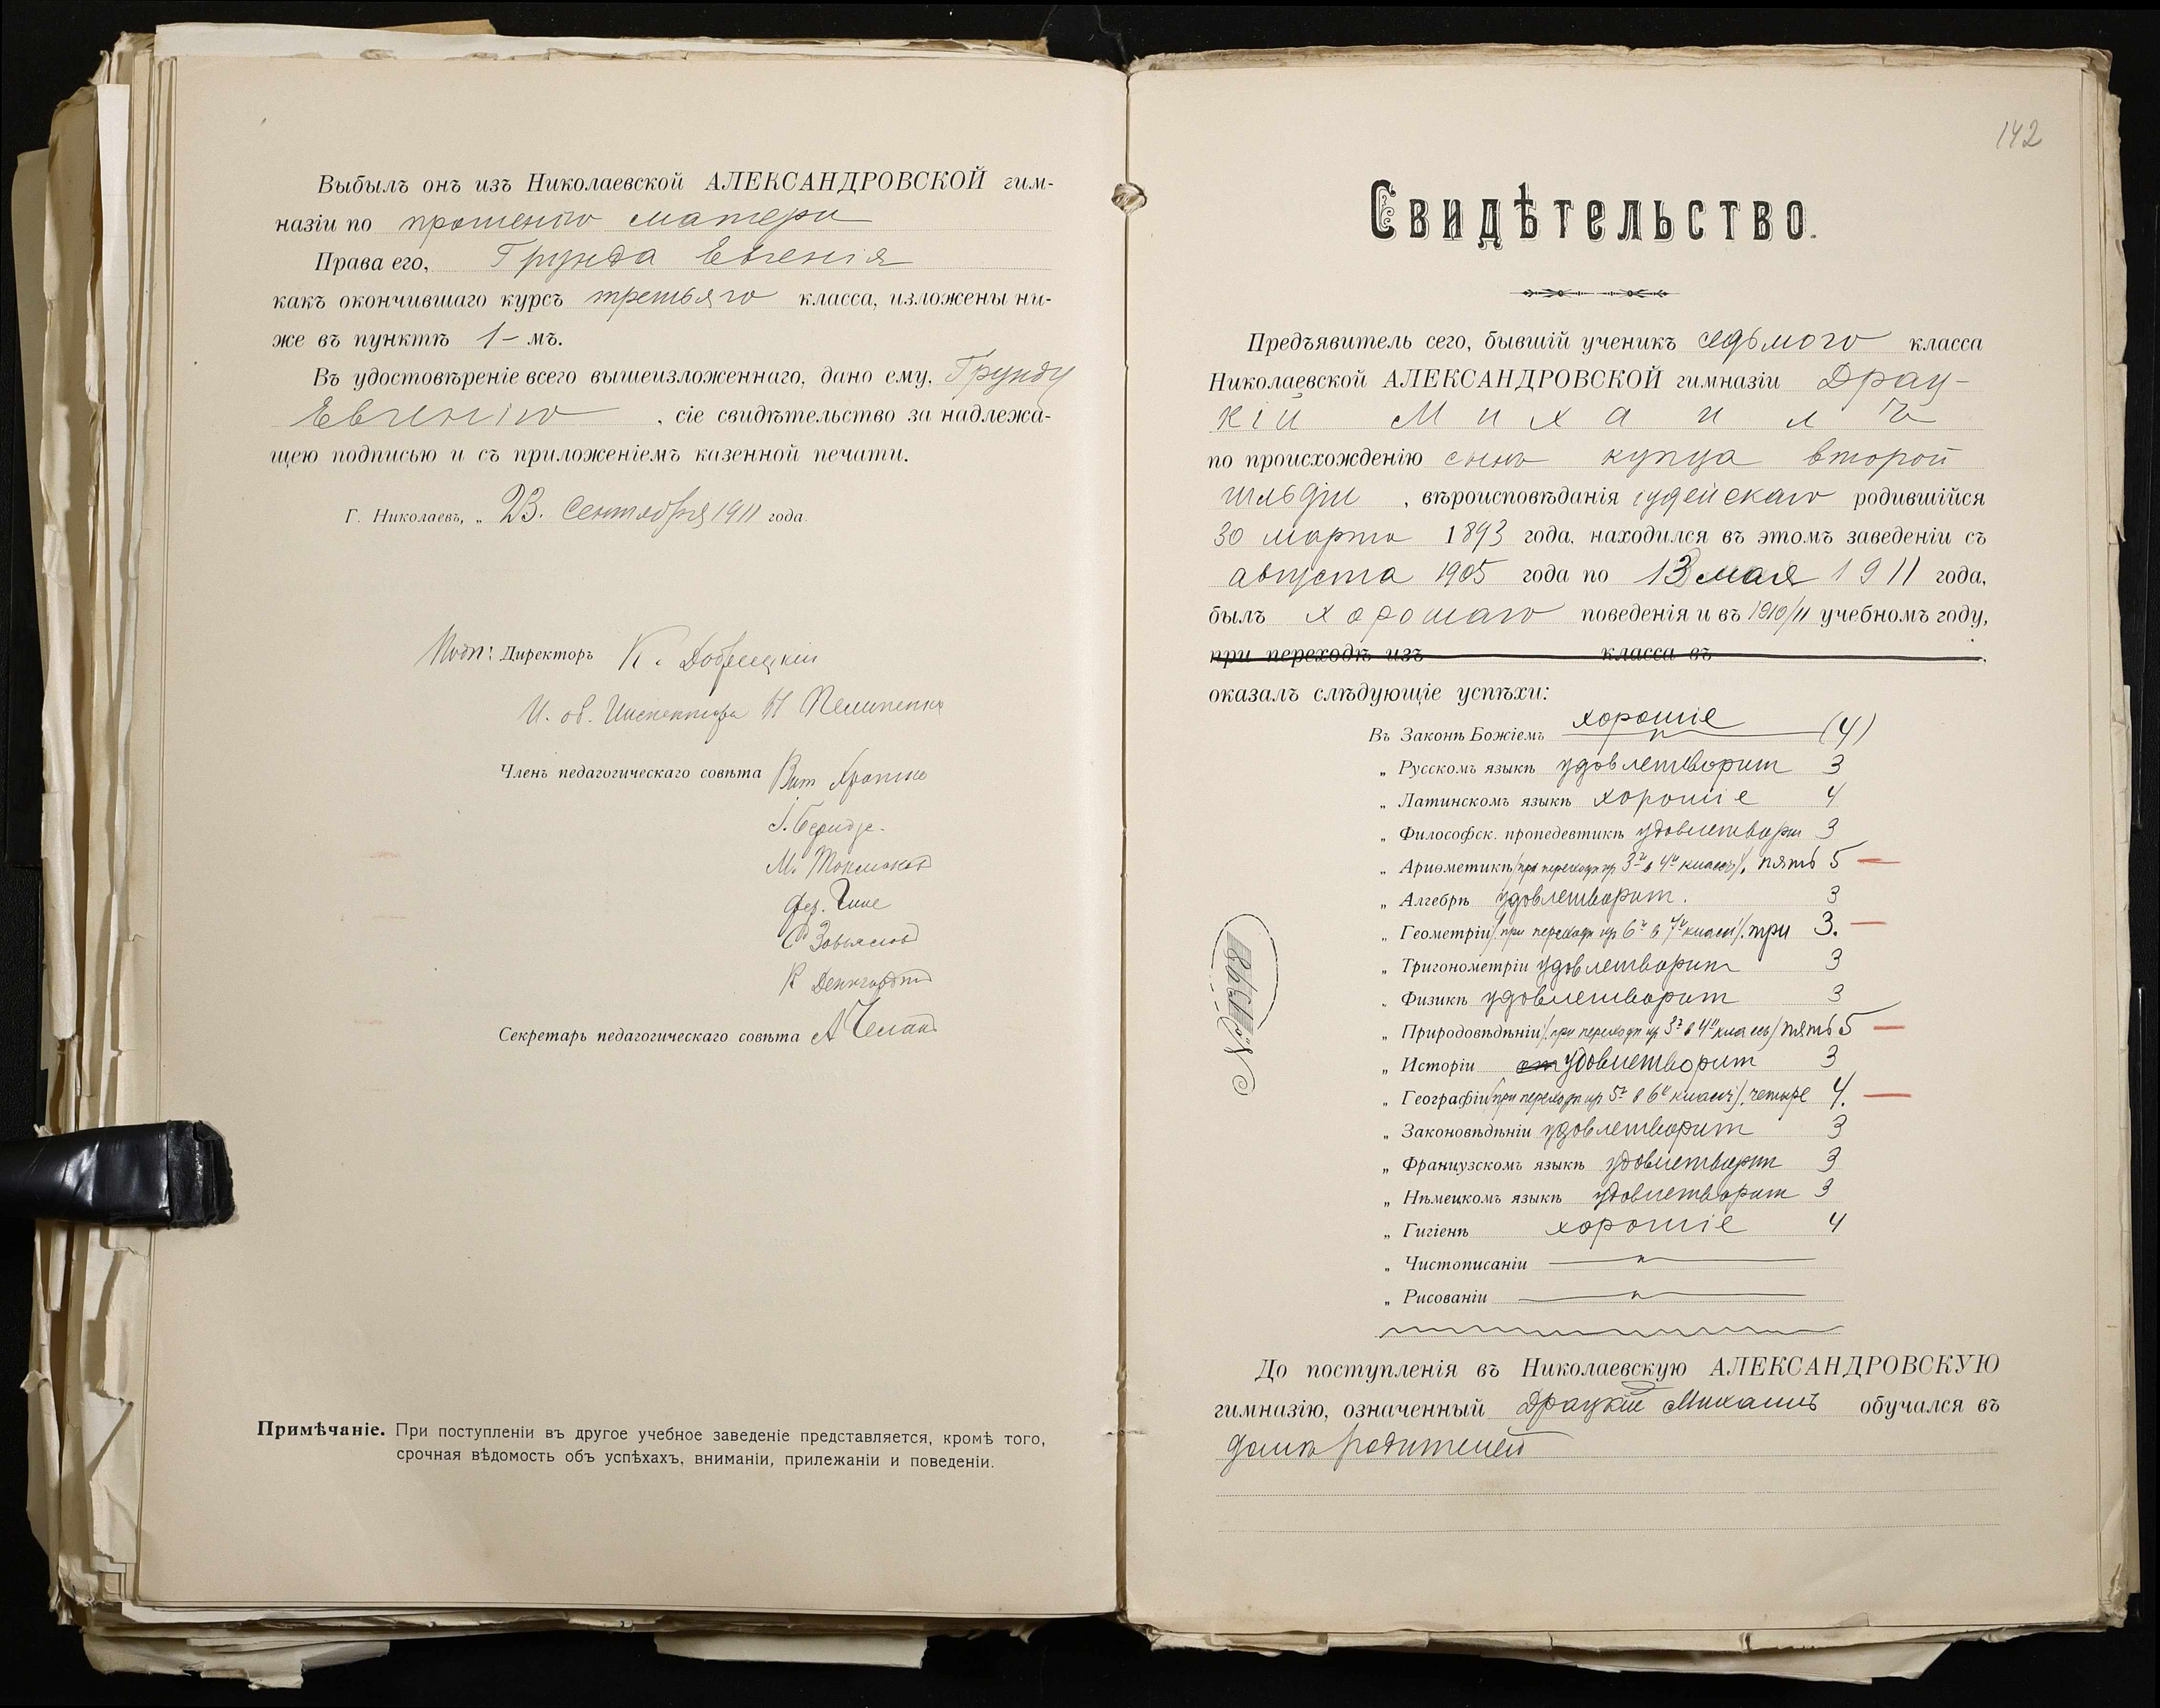 Выбылъ онъ изъ Николаевской АЛЕКСАНДРОВСКОЙ гим-
назіи по прошенію матери
Права его, Грунда Евгенія
какъ окончившаго курсъ третьяго класса, изложены ни-
же въ пунктѣ 1-мъ.
Въ удостовѣреніе всего вышеизложеннаго, дано ему, Грунду
Евгенію, сіе свидѣтельство за надлежа-
щею подписью и съ приложеніемъ казенной печати.
Г. Николаевъ, „ 23. Сентября 1911 года.
Подп: Директоръ К. Добрецкій
И. об. Инспектора
Членъ педагогическаго совѣта
Секретарь педагогическаго совѣта
Примѣчаніе. При поступленіи въ другое учебное заведеніе представляется, кромѣ того,
срочная вѣдомость объ успѣхахъ, вниманіи, прилежаніи и поведеніи.
142
Свидѣтельство.
Предъявитель сего, бывшій ученикъ седьмого класса
Николаевской АЛЕКСАНДРОВСКОЙ гимназіи Драц-
кій Михаилъ
по происхожденію сынъ купца второй
гильдіи, вѣроисповѣданія іудейскаго родившійся
30 марта 1893 года, находился въ этомъ заведеніи съ
августа 1905 года по 13 мая 1911 года,
былъ хорошаго поведенія и въ 1910/11 учебномъ году,
при переходѣ изъ класса въ
оказалъ слѣдующіе успѣхи:
Въ Законѣ Божіемъ хорошіе (4)
„ Русскомъ языкѣ удовлетворит 3
„ Латинскомъ языкѣ хорошіе 4
„ Философск. пропедевтикѣ удовлетворит 3
„ Ариѳметикѣ (при переходѣ изъ 3го въ 4й классъ). пять 5 —
„ Алгебрѣ удовлетворит. 3
„ Геометріи (при переходѣ изъ 6го въ 7й классъ). три 3. —
„ Тригонометріи удовлетворит 3
„ Физикѣ удовлетворит 3
„ Природовѣдѣніи (при переходѣ изъ 3го въ 4й классъ) пять 5 —
„ Исторіи удовлетворит 3
„ Географіи (при переходѣ изъ 5го въ 6й классъ). четыре 4. —
„ Законовѣдѣніи удовлетворит 3
„ Французскомъ языкѣ удовлетворит 3
„ Нѣмецкомъ языкѣ удовлетворит 3
„ Гигіенѣ хорошіе 4
„ Чистописаніи
„ Рисованіи
До поступленія въ Николаевскую АЛЕКСАНДРОВСКУЮ
гимназію, означенный Драцкій Михаилъ обучался въ
домѣ родителей